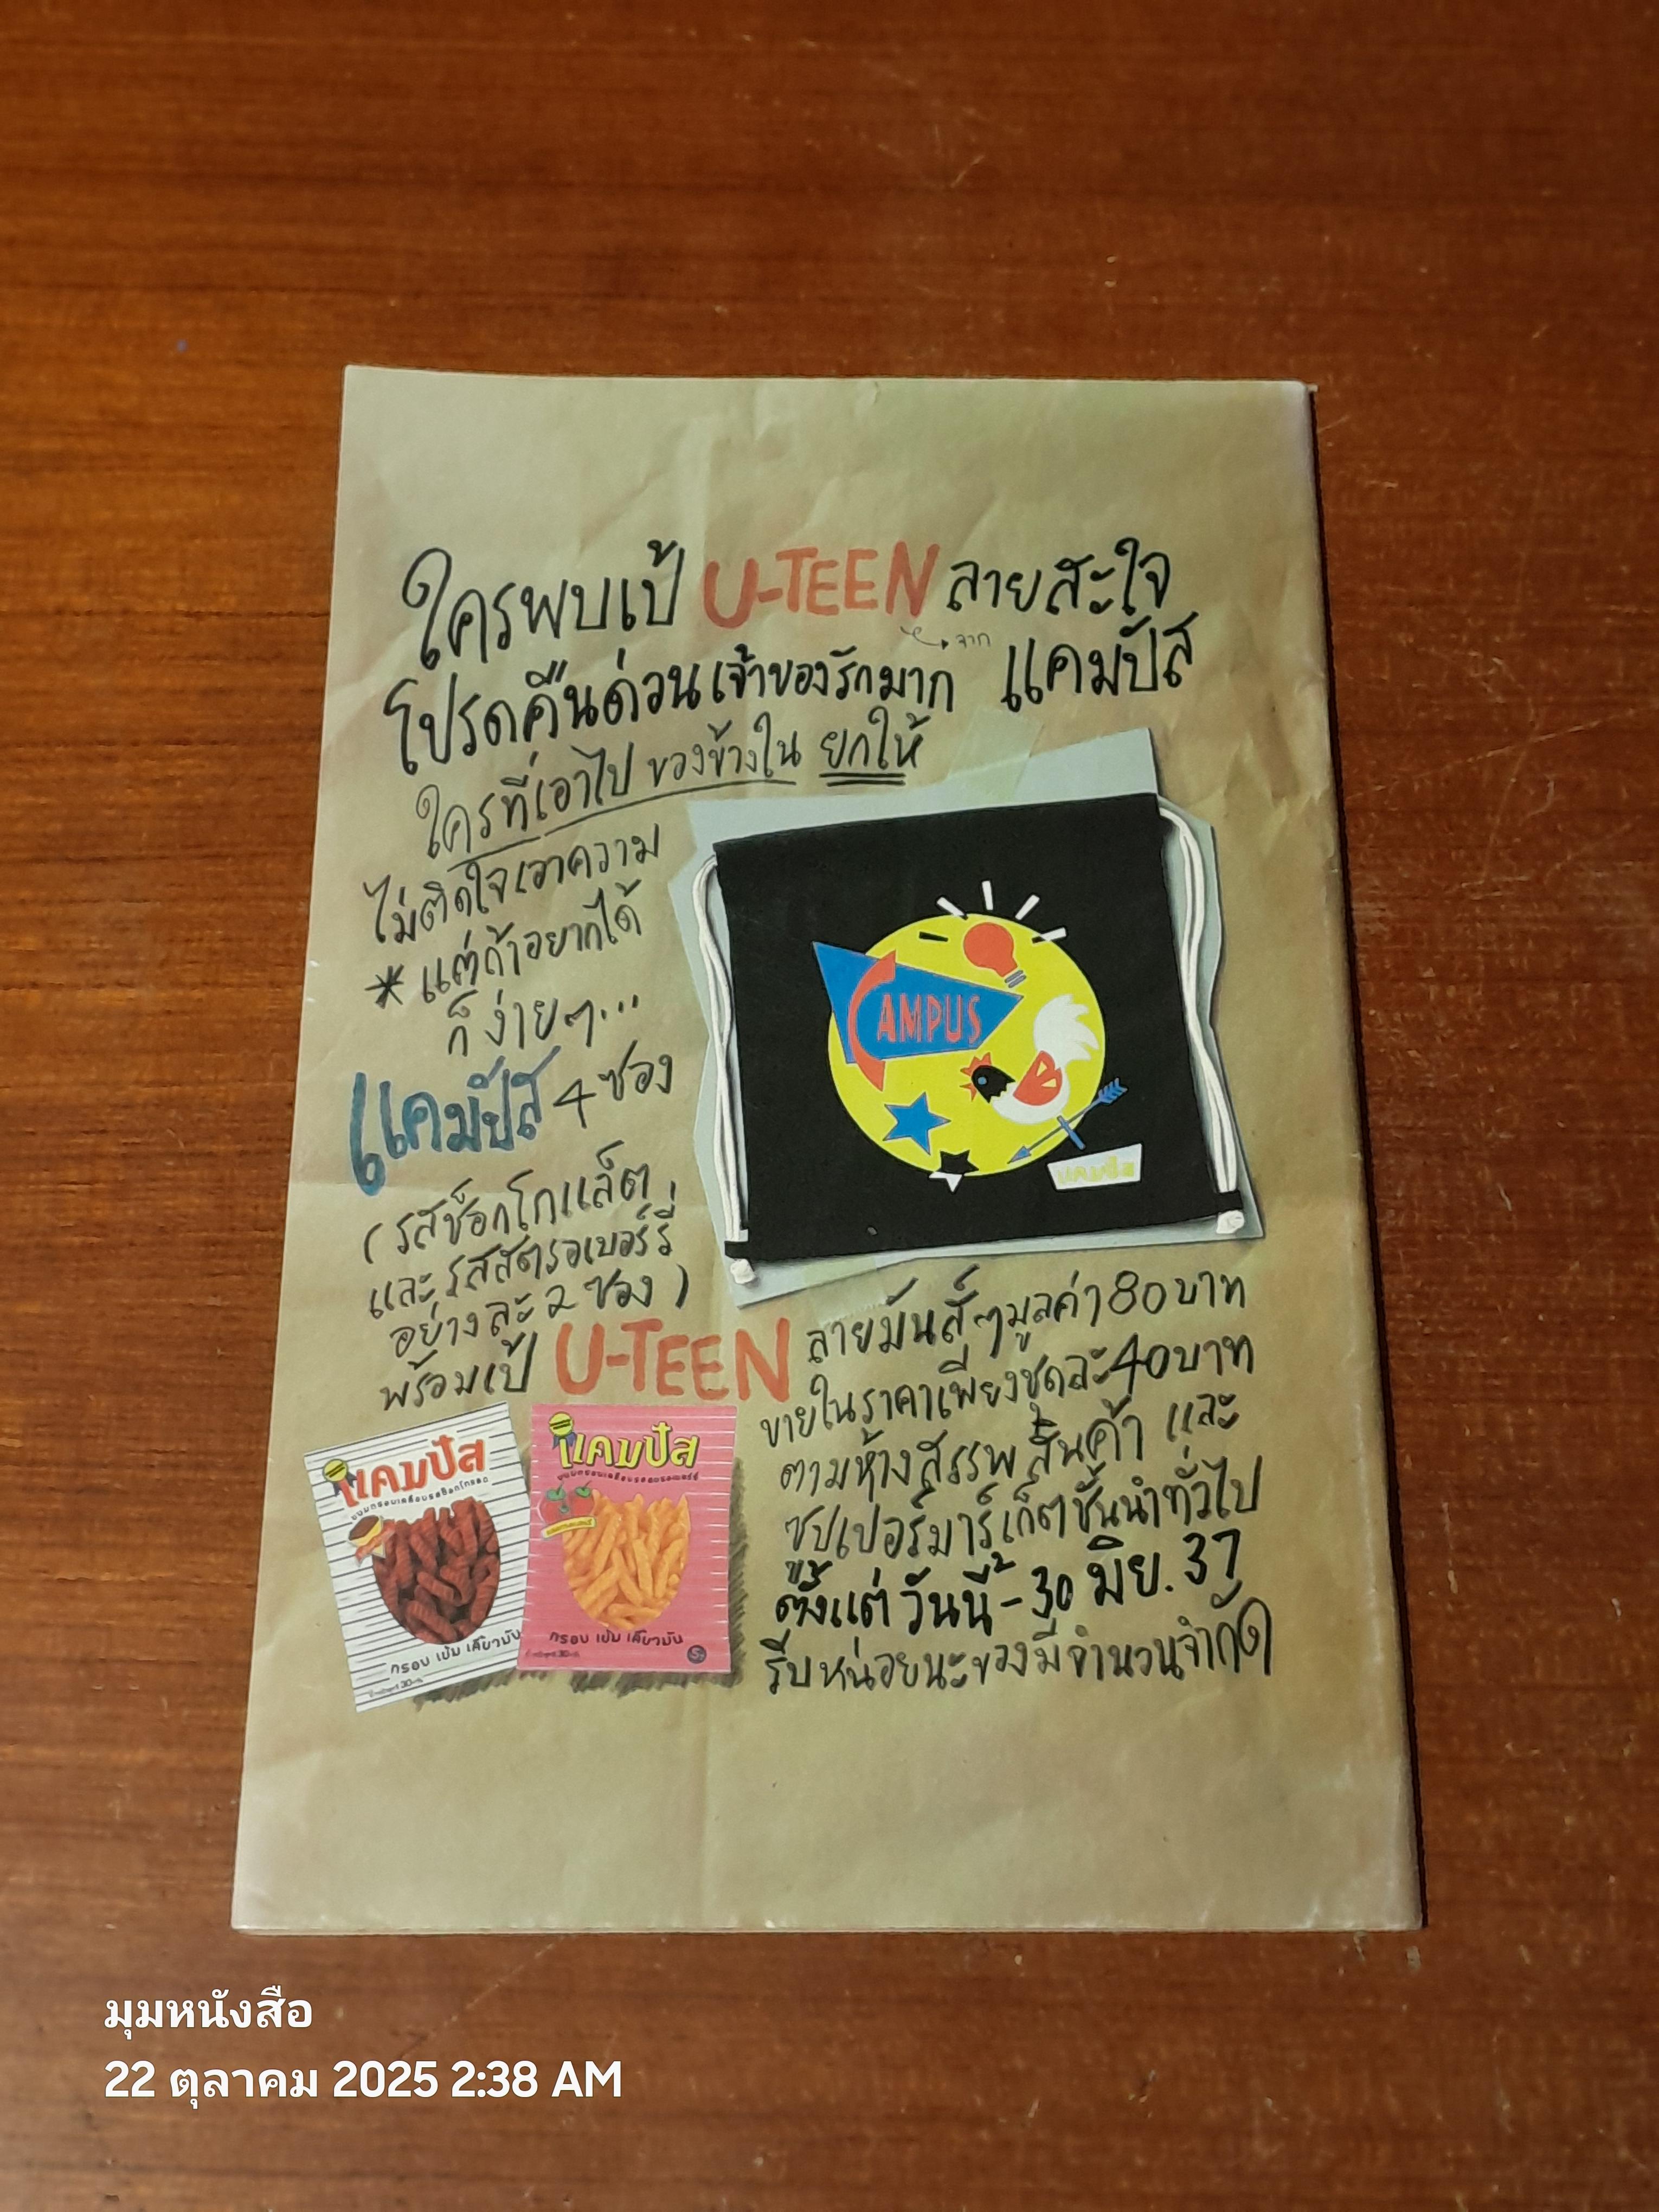 ใครพบเป้ U-TEEN ลายสะใจ
จาก แคมปัส
โปรดคืนด่วนเจ้าของรักมาก
ใครที่เอาไป ของข้างใน ยกให้
ไม่ติดใจเอาความ
* แต่ถ้าอยากได้
ก็ง่ายๆ...
แคมปัส 4 ซอง
(รสช็อกโกแล็ต
และรสสตรอเบอร์รี่
อย่างละ 2 ซอง)
พร้อมเป้ U-TEEN ลายมันส์ๆมูลค่า 80 บาท
ขายในราคาเพียงชุดละ 40 บาท
ตามห้างสรรพสินค้า และ
ซูปเปอร์มาร์เก็ตชั้นนำทั่วไป
ตั้งแต่วันนี้ - 30 มิย. 37
รีบหน่อยนะของมีจำนวนจำกัด
CAMPUS
แคมปัส
แคมปัส
ขนมกรอบเคลือบรสช็อกโกแลต
กรอบ เข้ม เคี้ยวมัน
แคมปัส
กรอบ เข้ม เคี้ยวมัน
มุมหนังสือ
22 ตุลาคม 2025 2:38 AM